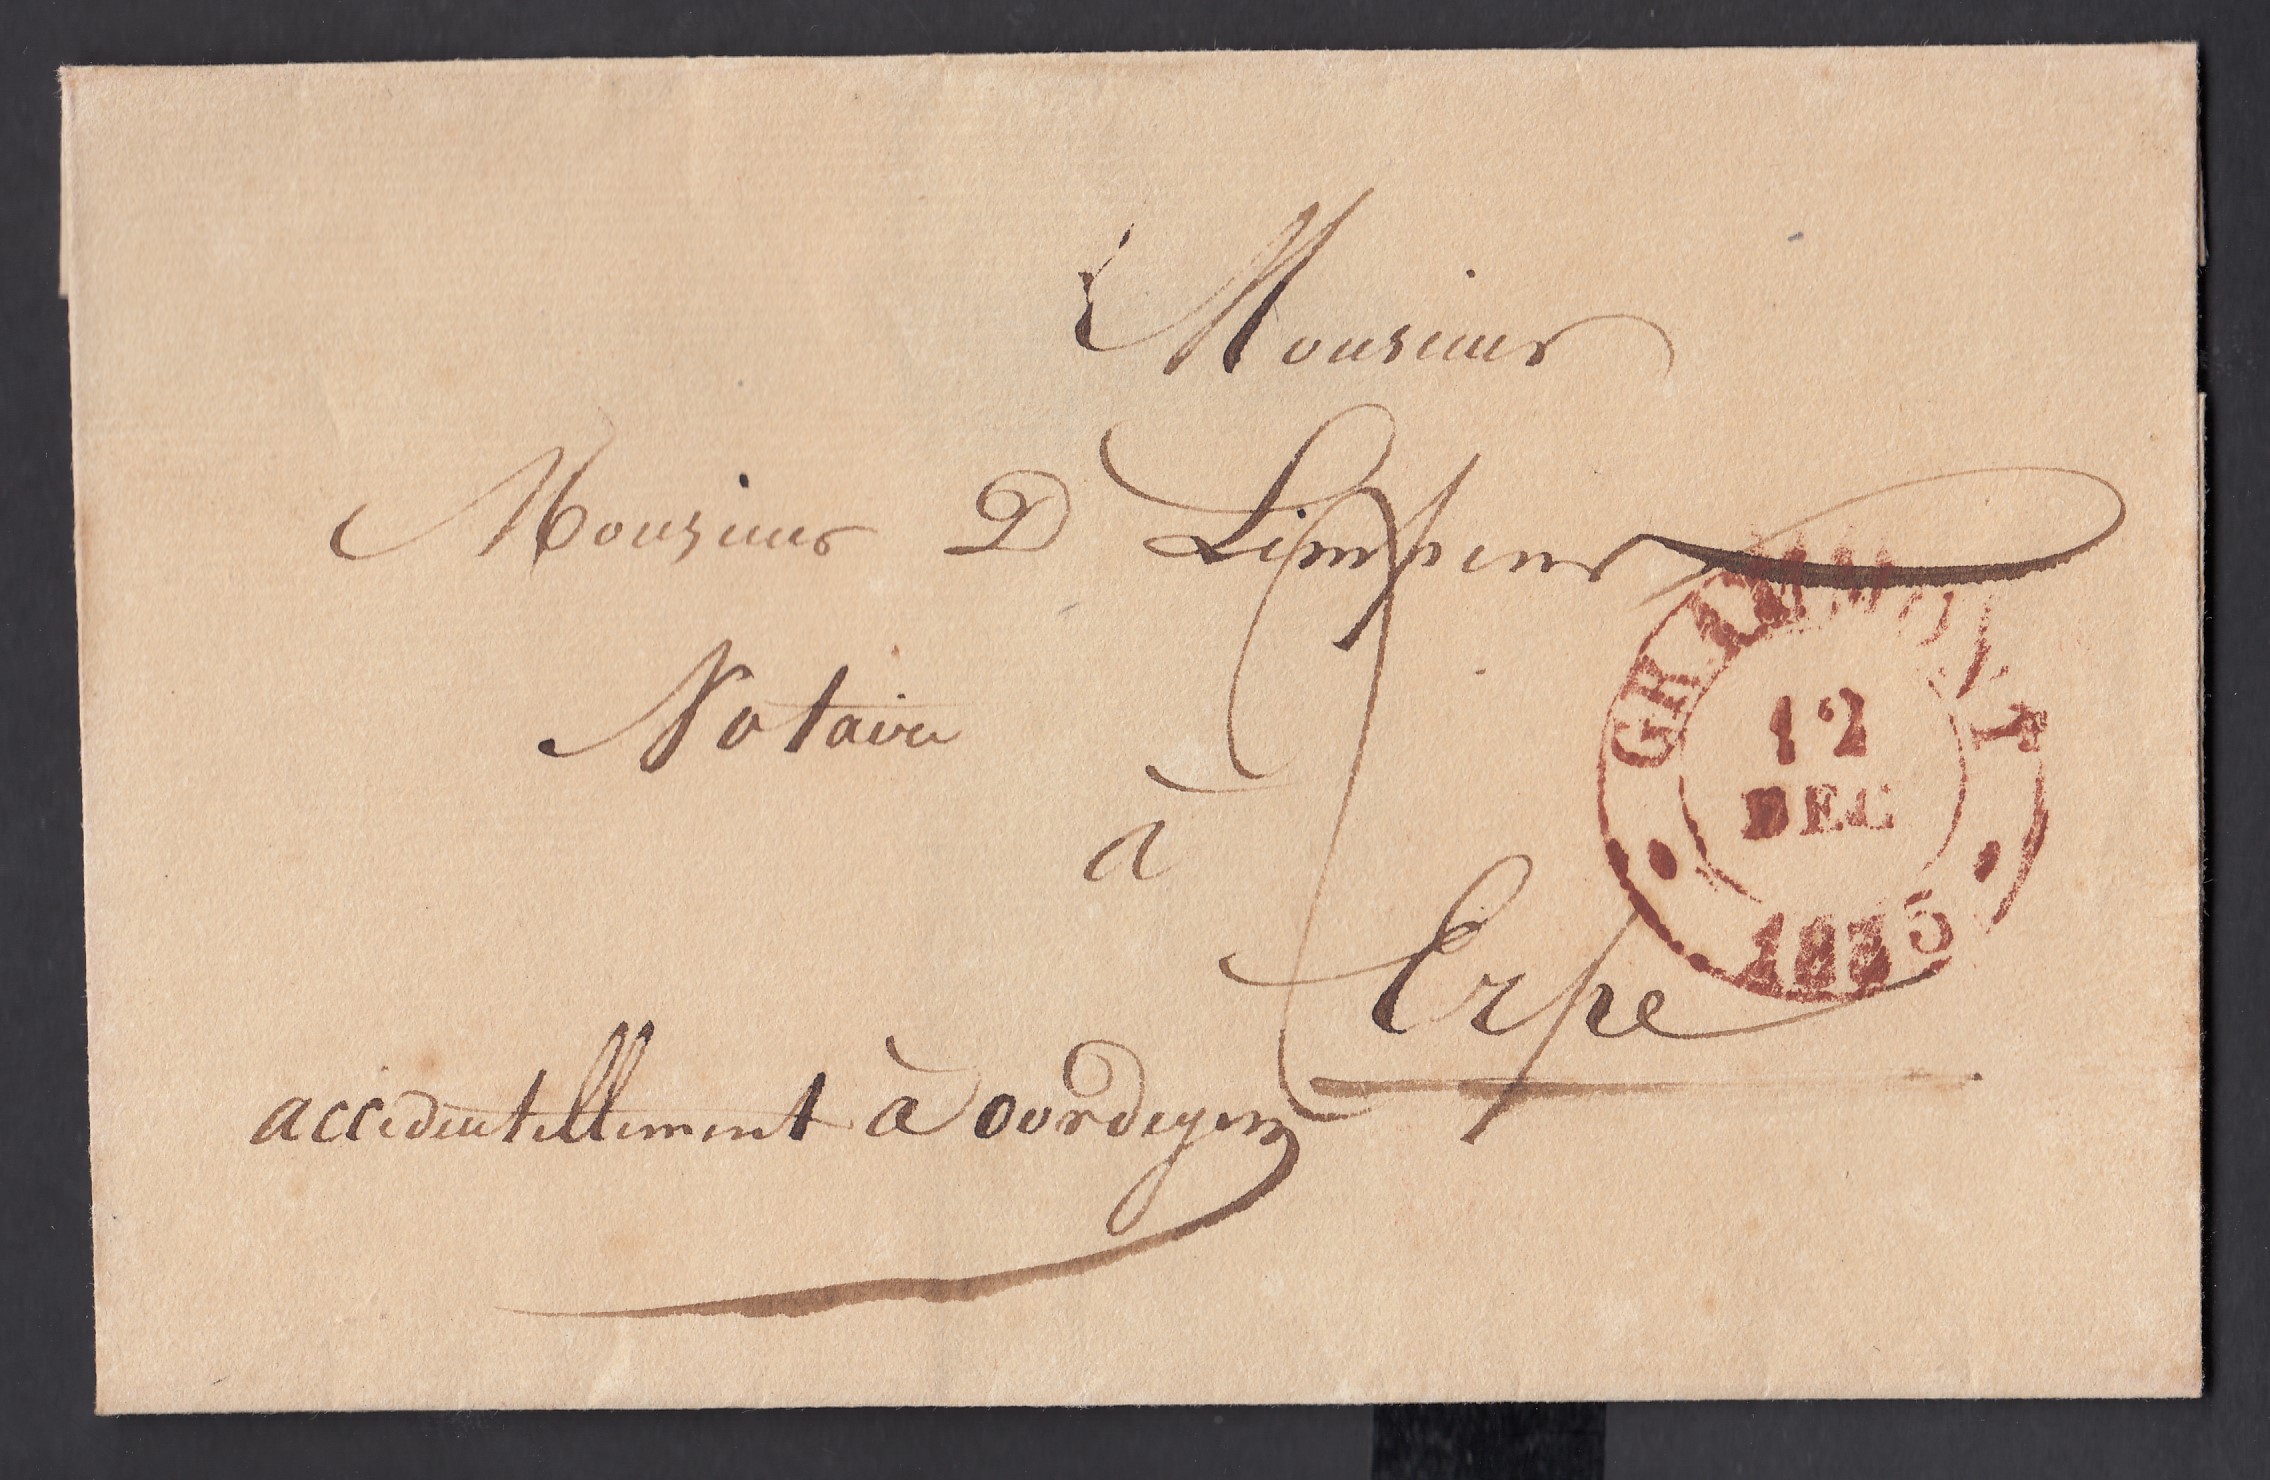 Monsieur
Monsieur D Limpens
Notaire
à
Erpe
accidentellement à oordegem
GRAMMONT
12
DEC
1835